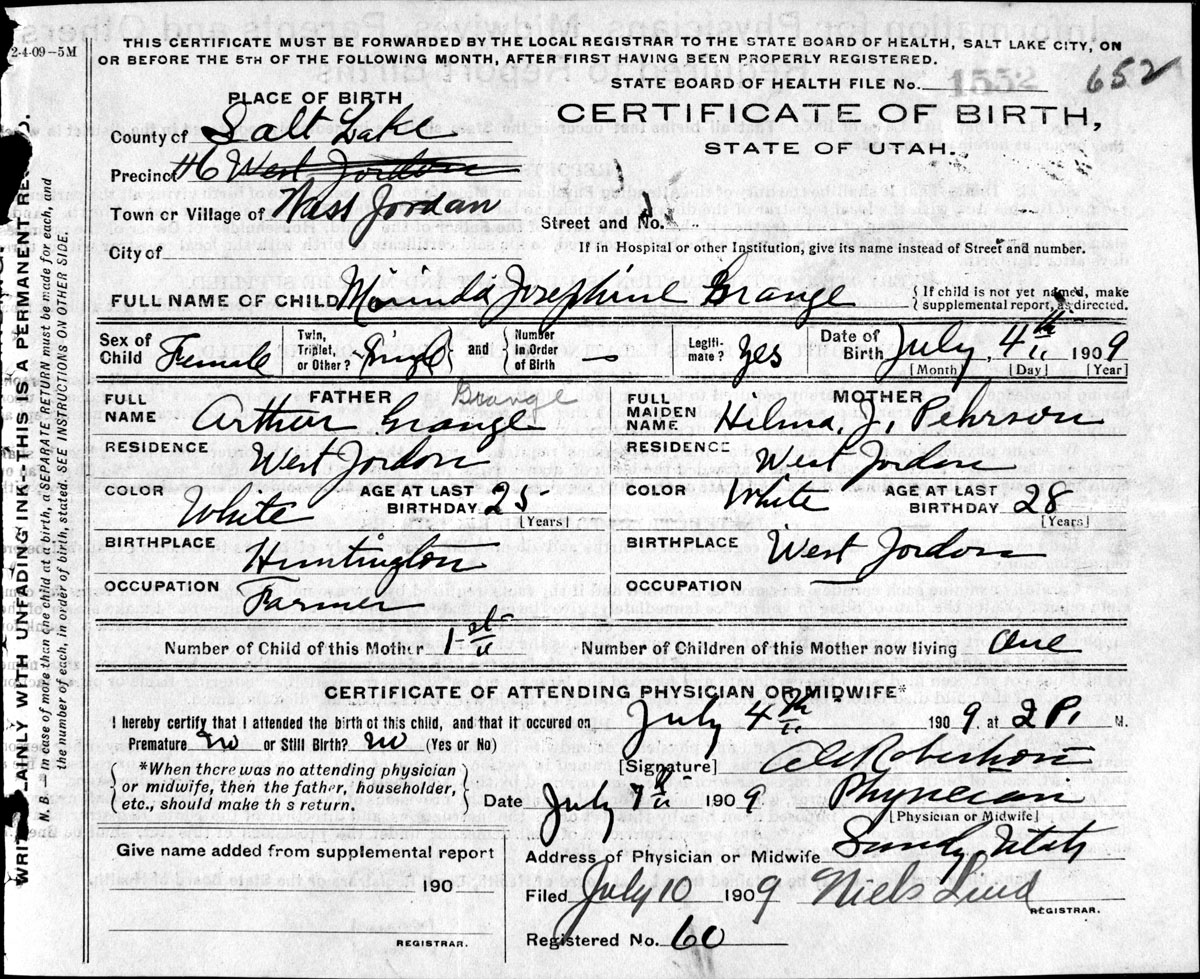 2-4-09-5M
THIS CERTIFICATE MUST BE FORWARDED BY THE LOCAL REGISTRAR TO THE STATE BOARD OF HEALTH, SALT LAKE CITY, ON
OR BEFORE THE 5TH OF THE FOLLOWING MONTH, AFTER FIRST HAVING BEEN PROPERLY REGISTERED.
STATE BOARD OF HEALTH FILE No. 1552 652
PLACE OF BIRTH
CERTIFICATE OF BIRTH,
STATE OF UTAH.
County of Salt Lake
Precinct #6 West Jordon
Town or Village of West Jordan
Street and No.
City of
If in Hospital or other Institution, give its name instead of Street and number.
FULL NAME OF CHILD Morinda Josephine Grange
{If child is not yet named, make
supplemental report, as directed.
Sex of Child Female Twin, Triplet, or Other? Single and Number in Order of Birth — Legiti-mate? yes Date of Birth July 4th 1909
[Month] [Day] [Year]
FATHER MOTHER
FULL NAME Arthur Grange Grange FULL MAIDEN NAME Hilma J. Pehrson
RESIDENCE West Jordon RESIDENCE West Jordon
COLOR White AGE AT LAST BIRTHDAY 25 [Years] COLOR White AGE AT LAST BIRTHDAY 28 [Years]
BIRTHPLACE Huntington BIRTHPLACE West Jordon
OCCUPATION Farmer OCCUPATION —
Number of Child of this Mother 1st Number of Children of this Mother now living One
CERTIFICATE OF ATTENDING PHYSICIAN OR MIDWIFE*
I hereby certify that I attended the birth of this child, and that it occured on July 4th 1909, at 2 P. M.
Premature no or Still Birth? no (Yes or No)
[Signature] Robertson
*When there was no attending physician
or midwife, then the father, householder,
etc., should make this return.
Date July 7th 1909 Physician
[Physician or Midwife]
Give name added from supplemental report
Address of Physician or Midwife Sandy Utah
190
Filed July 10 1909 Niels Lind
REGISTRAR.
REGISTRAR.
Registered No. 60
WRITE PLAINLY WITH UNFADING INK--THIS IS A PERMANENT
N. B.—In case of more than one child at a birth, a SEPARATE RETURN must be made for each, and
the number of each, in order of birth, stated. SEE INSTRUCTIONS ON OTHER SIDE.